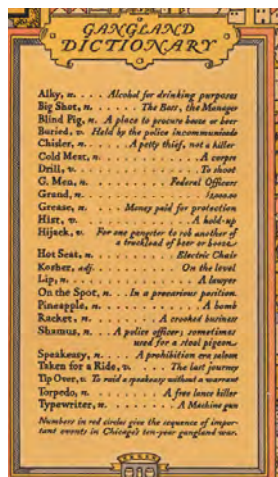 GANGLAND
DICTIONARY
Alky, n. . . . Alcohol for drinking purposes
Big Shot, n. . . . . . The Boss, the Manager
Blind Pig, n. A place to procure booze or beer
Buried, v. Held by the police incommunicado
Chisler, n. . . . . A petty thief, not a killer
Cold Meat, n. . . . . . . . . . . . A corpse
Drill, v. . . . . . . . . . . . . . To shoot
G. Men, n. . . . . . . . . Federal Officers
Grand, n. . . . . . . . . . . . . $1,000.00
Grease, n. . . . . Money paid for protection
Hist, v. . . . . . . . . . . . . . A hold-up
Hijack, v. For one gangster to rob another of
a truckload of beer or booze.
Hot Seat, n. . . . . . . . . Electric Chair
Kosher, adj. . . . . . . . . . On the level
Lip, n. . . . . . . . . . . . . . . A lawyer
On the Spot, n. . . . In a precarious position.
Pineapple, n. . . . . . . . . . . . A bomb
Racket, n. . . . . . . . A crooked business
Shamus, n. . . . A police officer; sometimes
used for a stool pigeon.
Speakeasy, n. . . . . A prohibition era saloon
Taken for a Ride, v. . . . The last journey
Tip Over, v. To raid a speakeasy without a warrant
Torpedo, n. . . . . . . A free lance killer
Typewriter, n. . . . . . . A Machine gun
Numbers in red circles give the sequence of impor-
tant events in Chicago's ten-year gangland war.